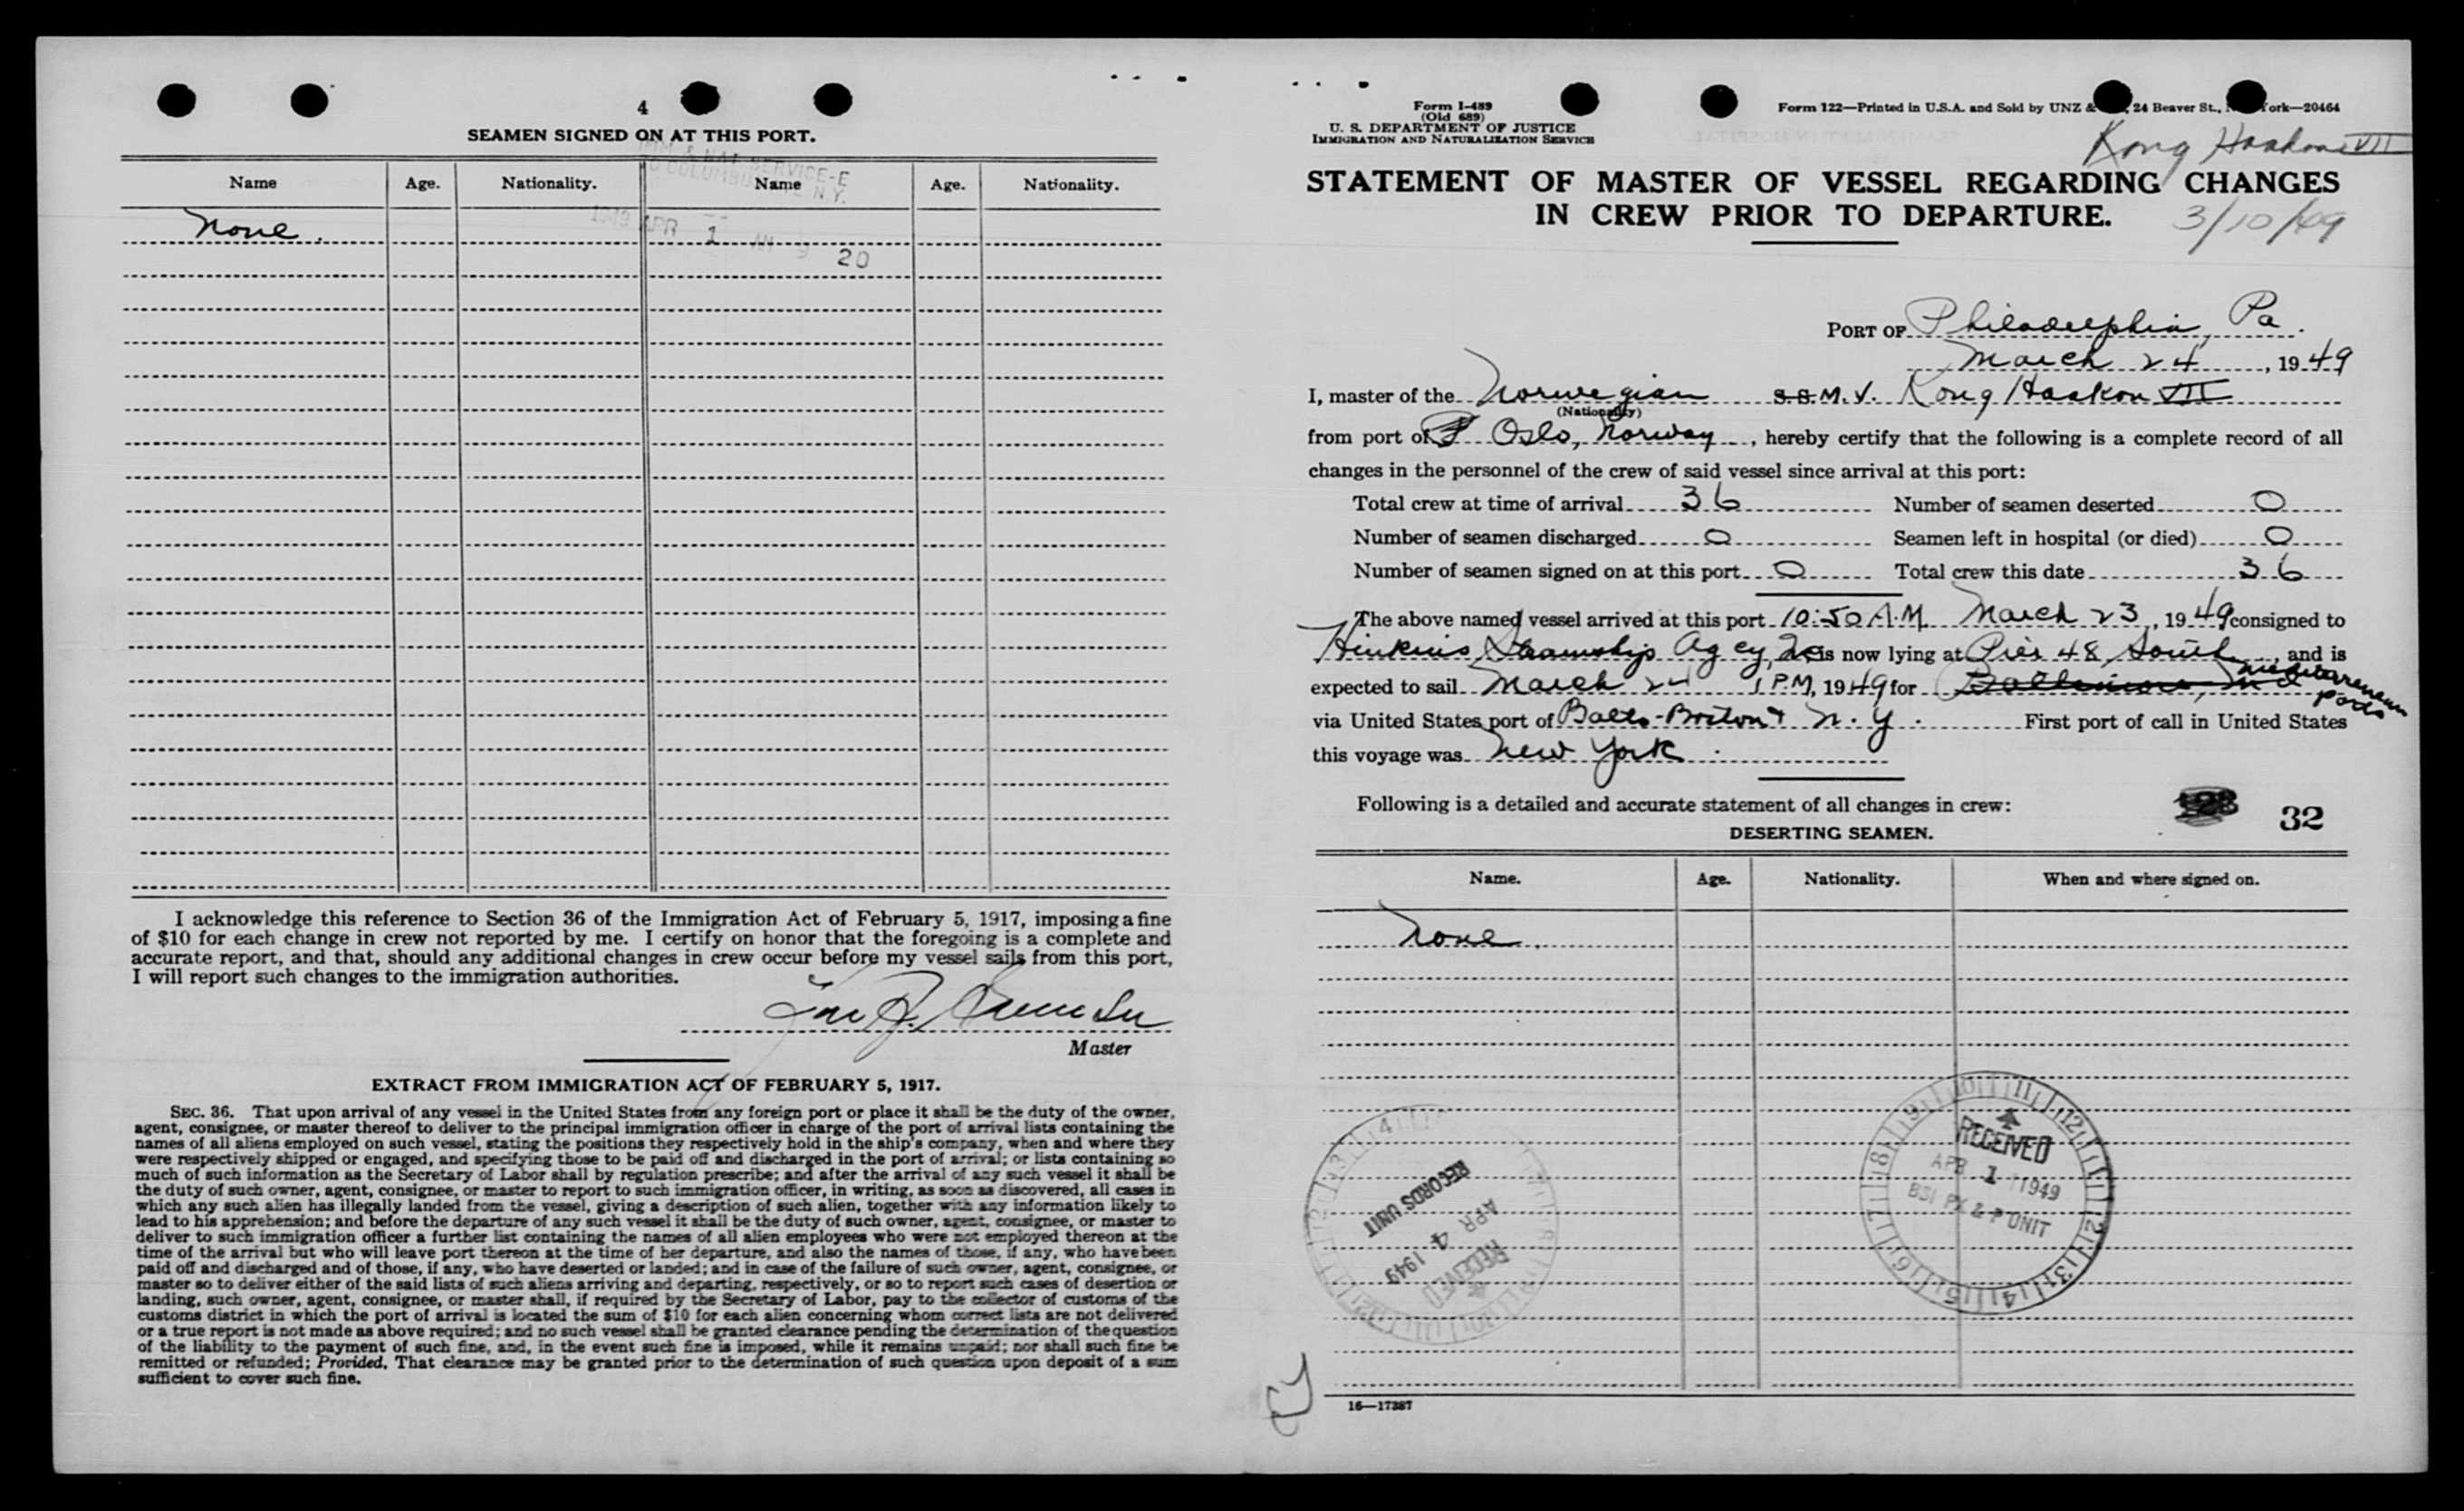 4
SEAMEN SIGNED ON AT THIS PORT.
IMM & NAT SERVICE-E
COLUMBUS N.Y.
1949 APR 1 AM 9 20
Name Age. Nationality. Name Age. Nationality.
None.
I acknowledge this reference to Section 36 of the Immigration Act of February 5, 1917, imposing a fine
of $10 for each change in crew not reported by me. I certify on honor that the foregoing is a complete and
accurate report, and that, should any additional changes in crew occur before my vessel sails from this port,
I will report such changes to the immigration authorities.
Master
EXTRACT FROM IMMIGRATION ACT OF FEBRUARY 5, 1917.
SEC. 36. That upon arrival of any vessel in the United States from any foreign port or place it shall be the duty of the owner,
agent, consignee, or master thereof to deliver to the principal immigration officer in charge of the port of arrival lists containing the
names of all aliens employed on such vessel, stating the positions they respectively hold in the ship's company, when and where they
were respectively shipped or engaged, and specifying those to be paid off and discharged in the port of arrival; or lists containing so
much of such information as the Secretary of Labor shall by regulation prescribe; and after the arrival of any such vessel it shall be
the duty of such owner, agent, consignee, or master to report to such immigration officer, in writing, as soon as discovered, all cases in
which any such alien has illegally landed from the vessel, giving a description of such alien, together with any information likely to
lead to his apprehension; and before the departure of any such vessel it shall be the duty of such owner, agent, consignee, or master to
deliver to such immigration officer a further list containing the names of all alien employees who were not employed thereon at the
time of the arrival but who will leave port thereon at the time of her departure, and also the names of those, if any, who have been
paid off and discharged and of those, if any, who have deserted or landed; and in case of the failure of such owner, agent, consignee, or
master so to deliver either of the said lists of such aliens arriving and departing, respectively, or so to report such cases of desertion or
landing, such owner, agent, consignee, or master shall, if required by the Secretary of Labor, pay to the collector of customs of the
customs district in which the port of arrival is located the sum of $10 for each alien concerning whom correct lists are not delivered
or a true report is not made as above required; and no such vessel shall be granted clearance pending the determination of the question
of the liability to the payment of such fine, and, in the event such fine is imposed, while it remains unpaid; nor shall such fine be
remitted or refunded; Provided, That clearance may be granted prior to the determination of such question upon deposit of a sum
sufficient to cover such fine.
Form I-489
(Old 689)
U. S. DEPARTMENT OF JUSTICE
IMMIGRATION AND NATURALIZATION SERVICE
Form 122—Printed in U.S.A. and Sold by UNZ & 24 Beaver St., York—20464
Kong Haakon VII
STATEMENT OF MASTER OF VESSEL REGARDING CHANGES
IN CREW PRIOR TO DEPARTURE.
3/10/49
PORT OF Philadelphia, Pa.
March 24, 1949
I, master of the Norwegian S.S. M.V. Kong Haakon VII
(Nationality)
from port of Oslo, Norway, hereby certify that the following is a complete record of all
changes in the personnel of the crew of said vessel since arrival at this port:
Total crew at time of arrival 36 Number of seamen deserted 0
Number of seamen discharged 0 Seamen left in hospital (or died) 0
Number of seamen signed on at this port 0 Total crew this date 36
The above named vessel arrived at this port 10:50 A.M. March 23, 1949 consigned to
Hinkins Steamship Agcy, Inc is now lying at Pier 48 South, and is
expected to sail March 24 1 P.M, 1949 for Baltimore, Md Mediterranean ports
via United States port of Balto-Boston & N.Y. First port of call in United States
this voyage was New York.
Following is a detailed and accurate statement of all changes in crew:
32
DESERTING SEAMEN.
Name. Age. Nationality. When and where signed on.
None.
RECEIVED
APR 4 1949
RECORDS UNIT
RECEIVED
APR 1 1949
BSI PX & P UNIT
16—17387